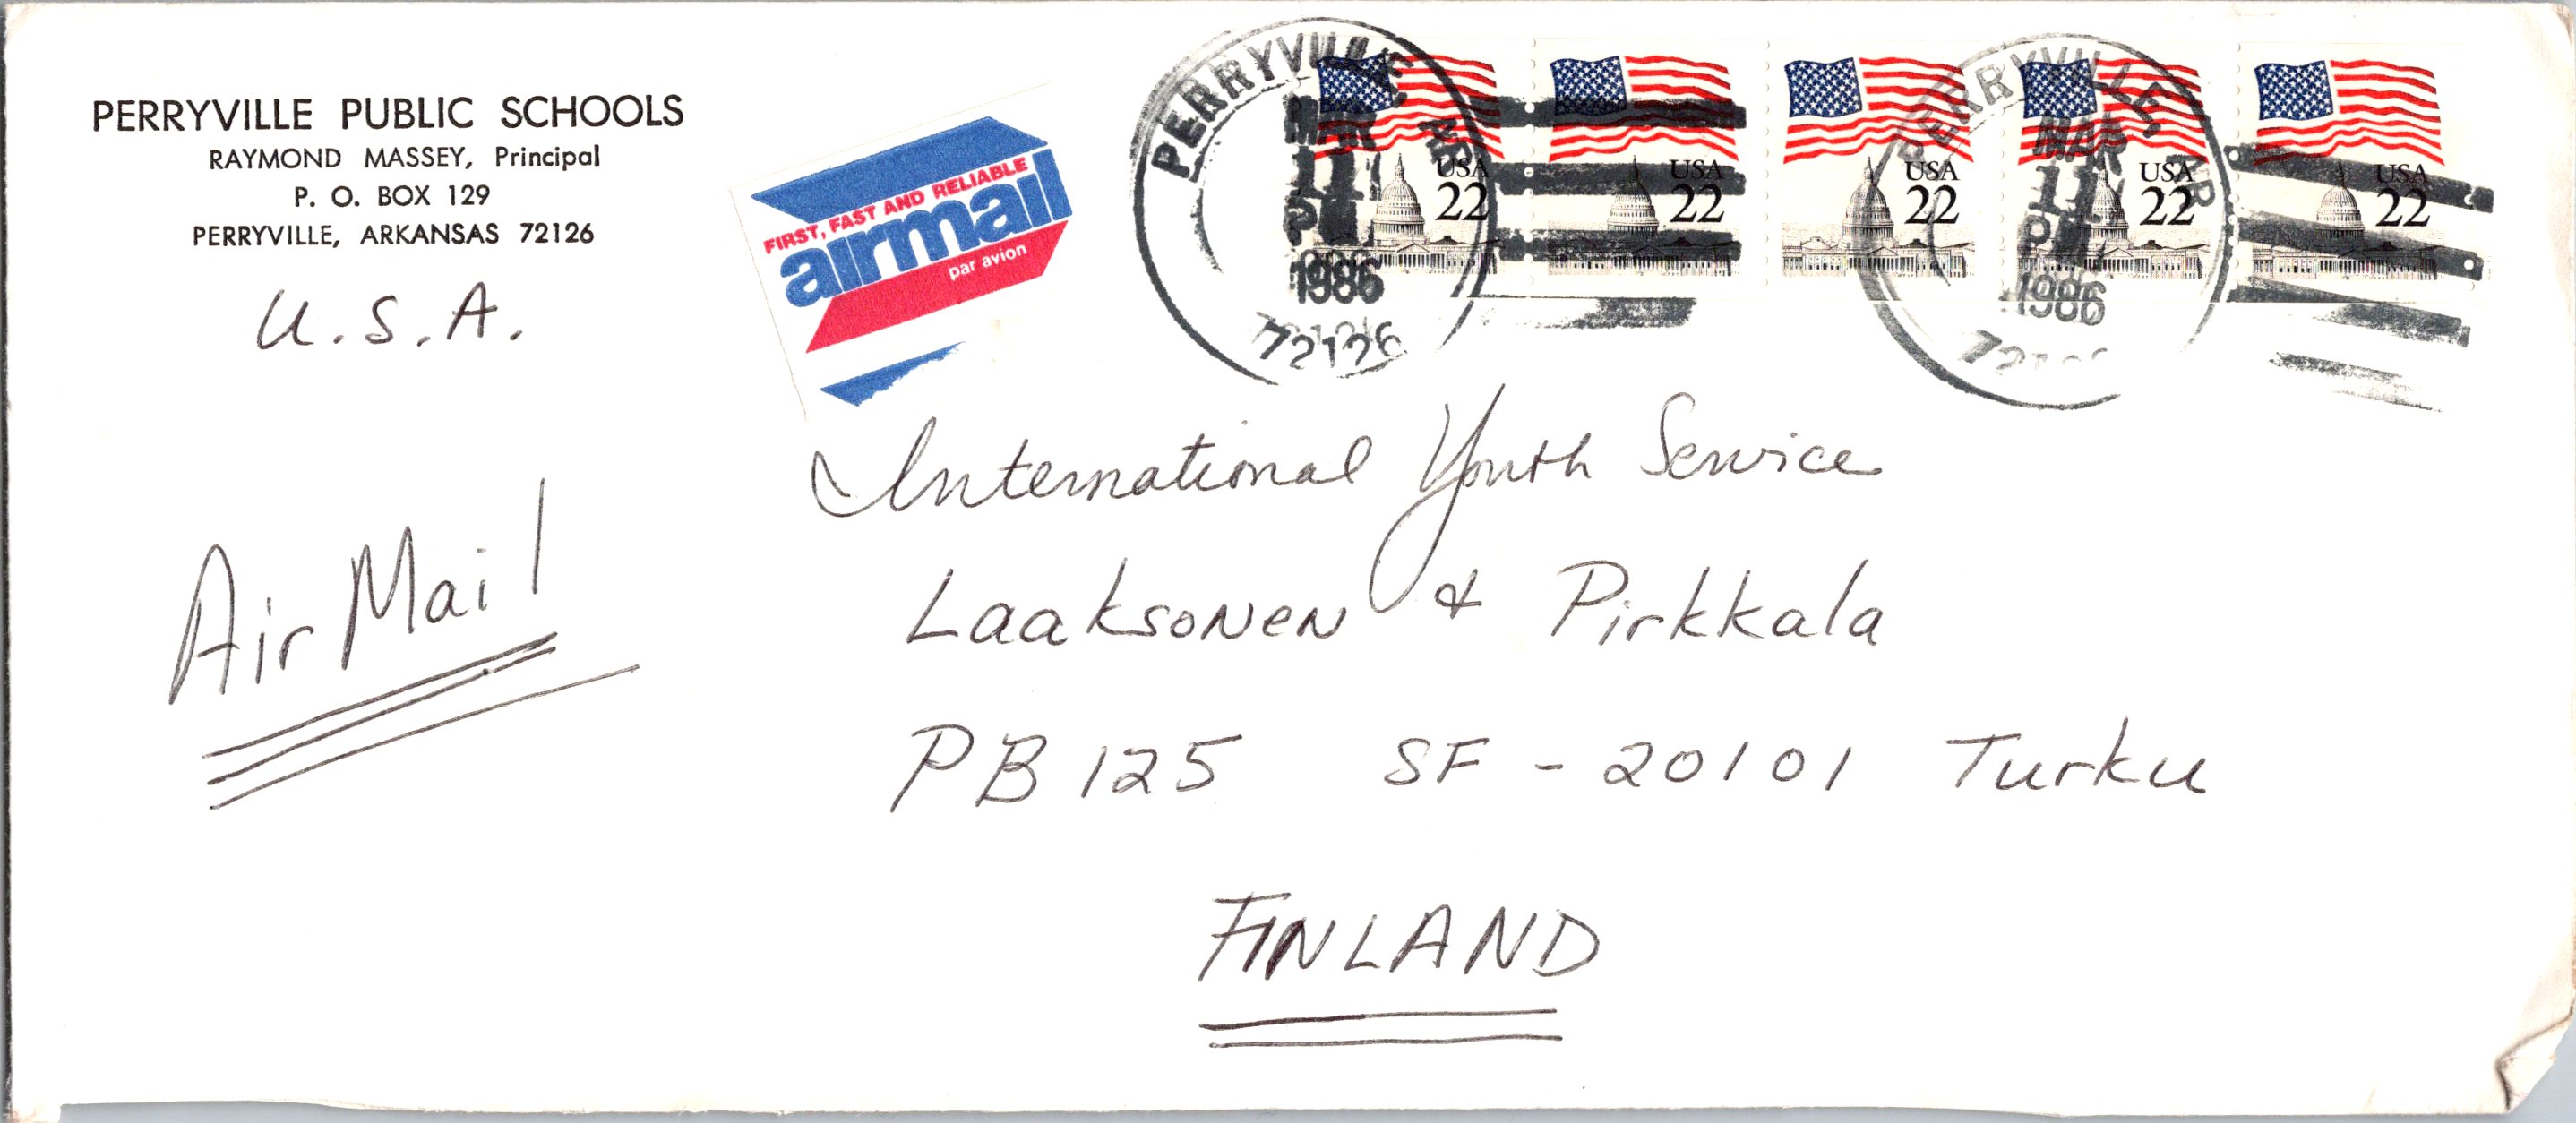 PERRYVILLE PUBLIC SCHOOLS
RAYMOND MASSEY, Principal
P. O. BOX 129
PERRYVILLE, ARKANSAS 72126
U.S.A.
FIRST, FAST AND RELIABLE
airmail
par avion
PERRYVILLE, AR
MAR
11
PM
1986
72126
USA
22
USA
22
USA
22
USA
22
USA
22
PERRYVILLE, AR
MAR
11
PM
1986
Air Mail
International Youth Service
Laaksonen & Pirkkala
PB 125 SF - 20101 Turku
FINLAND